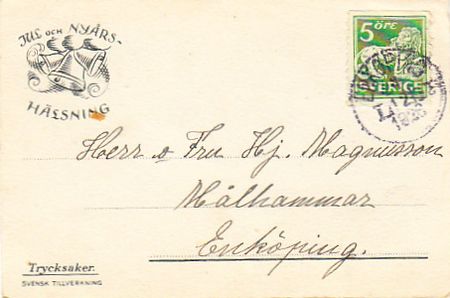 JUL OCH NYÅRS-
HÄLSNING
5 ÖRE
SVERIGE
Herr o Fru Hj. Magnusson
Målhammar
Enköping.
Trycksaker.
SVENSK TILLVERKNING